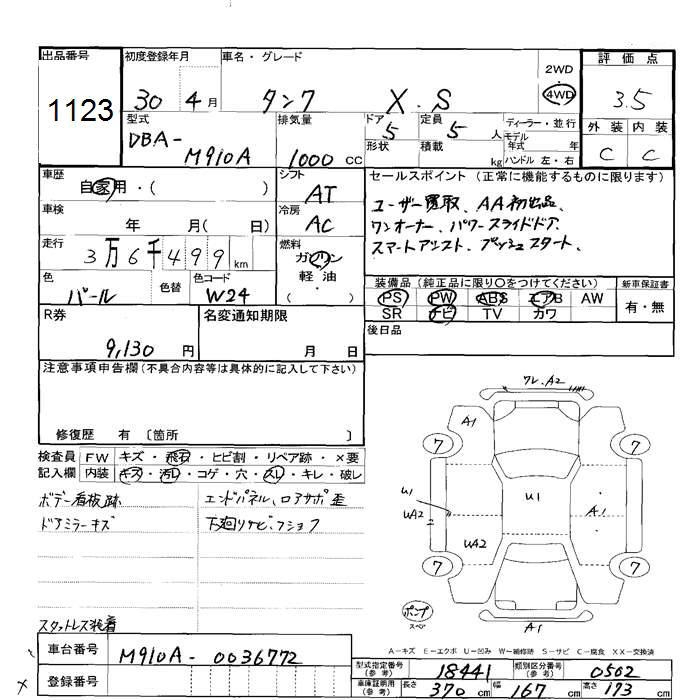 出品番号
1123
初度登録年月
30 4月
車名・グレード
タンク X.S
2WD
4WD
評価点
3.5
外装 内装
C C
型式
DBA-
M910A
排気量
1000 CC
ドア
5
形状
定員
5 人
積載
kg
ディーラー・並行
モデル
年式 年
ハンドル 左・右
車歴
自家用・( )
シフト
AT
セールスポイント(正常に機能するものに限ります)
ユーザー買取、AA初出品、
ワンオーナー、パワースライドドア、
スマートアシスト、プッシュスタート、
車検
年 月( 日)
冷房
AC
走行
3万6千499 km
燃料
ガソリン
軽・油
( )
色
パール
色替
色コード
W24
装備品(純正品に限り〇をつけてください)
PS PW ABS エアB AW
SR ナビ TV カワ
新車保証書
有・無
R券
9,130 円
名変通知期限
月 日
後日品
注意事項申告欄(不具合内容等は具体的に記入して下さい)
修復歴 有 〔箇所 〕
検査員
記入欄
FW キズ・飛石・ヒビ割・リペア跡・×要
内装 キズ・汚レ・コゲ・穴・スレ・キレ・破レ
ボデー看板跡
ドアミラーキズ
エンドパネル、ロアサポ歪
下廻りサビ・フショク
スタットレス装着
ワレ.A2
A1
7
7
U1
UA2
U1
A1
UA2
7
7
ポンプ
スペア
A1
A-キズ E-エクボ U-凹み W-補修跡 S-サビ C-腐食 XX-交換済
車台番号
M910A-0036772
登録番号
×
型式指定番号
(参考)
18441
類別区分番号
(参考)
0502
車庫証明用
(参考)
長さ
370 cm
幅
167 cm
高さ
173 cm